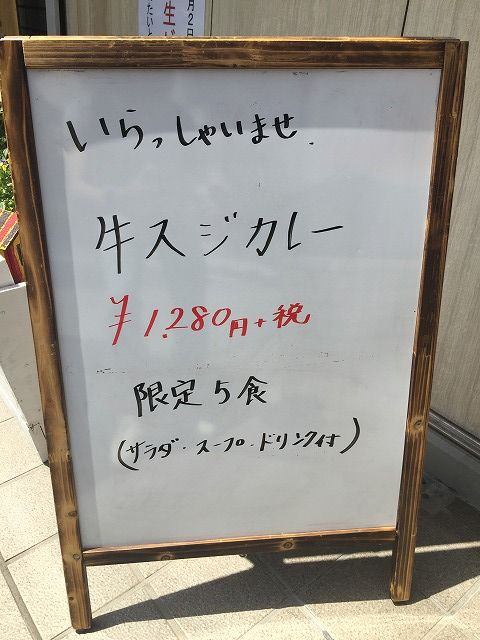 月2日
生
たいと
いらっしゃいませ.
牛スジカレー
¥1.280円+税
限定5食
(サラダ・スープ・ドリンク付)